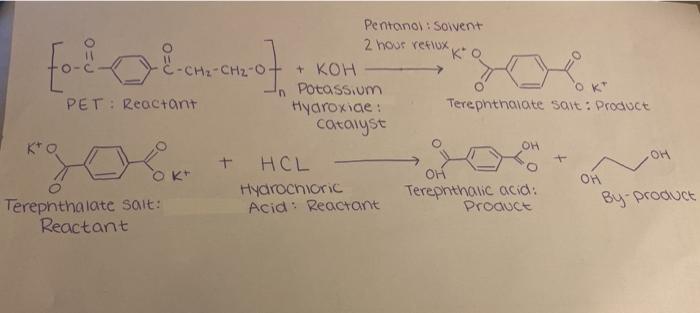 Pentanol : Solvent
2 hour reflux
[ O-C(=O)- -C(=O)-CH₂-CH₂-O ]n + KOH
K⁺ O O
O O K⁺
PET : Reactant
Potassium
Hydroxide :
catalyst
Terephthalate salt : Product
K⁺ O O
O O K⁺
+ HCL
O OH
OH O
+
OH
OH
Terephthalate salt:
Reactant
Hydrochloric
Acid : Reactant
Terephthalic acid:
Product
By-product